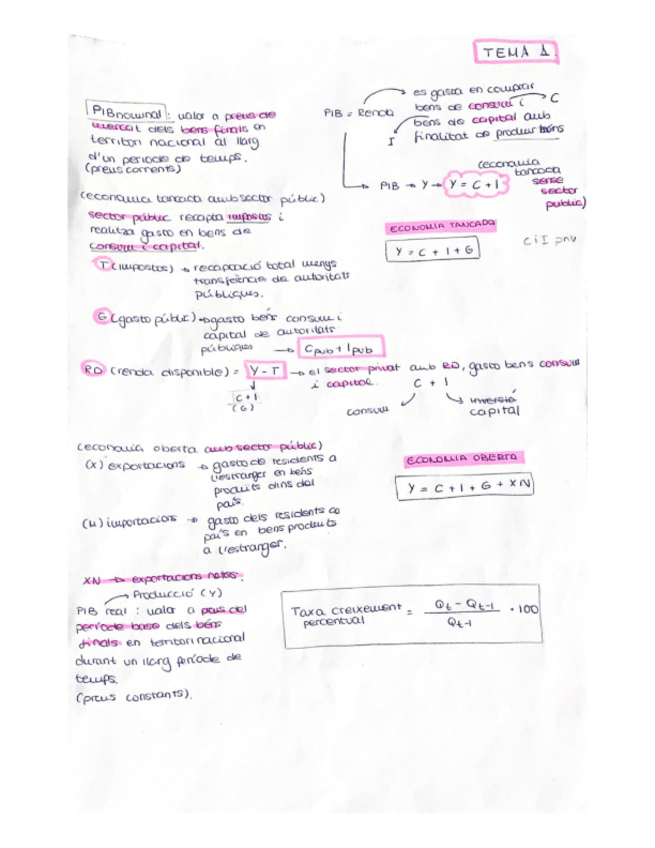 TEMA 1.
PIB nominal : valor a preus de
mercat dels béns finals en
territori nacional al llarg
d'un període de temps.
(preus corrents)
PIB = Renda
es gasta en comprar
béns de consum i C
béns de capital amb
I finalitat de produir béns
PIB → Y → Y = C + I
(economia
tancada
sense
sector
públic)
(economia tancada amb sector públic)
sector públic recapta impostos i
realitza gasto en béns de
consum i capital.
ECONOMIA TANCADA
Y = C + I + G
C i I priv
T (impostos) → recaptació total menys
transferència de autoritats
públiques.
G (gasto públic) → gasto béns consum i
capital de autoritats
públiques → Cpub + Ipub
RD (renda disponible) = Y - T → el sector privat amb RD, gasta béns consum
i capital. C + I
C + I
(G)
consum
inversió
capital
(economia oberta amb sector públic)
(X) exportacions → gasto de residents a
l'estranger en béns
produïts dins del
país.
ECONOMIA OBERTA
Y = C + I + G + XN
(M) importacions → gasto dels residents de
país en béns produïts
a l'estranger.
XN → exportacions netes.
Producció (Y)
PIB real : valor a preus del
període base dels béns
finals en territori nacional
durant un llarg període de
temps.
(preus constants).
Taxa creixement percentual = Qt - Qt-1 / Qt-1 · 100